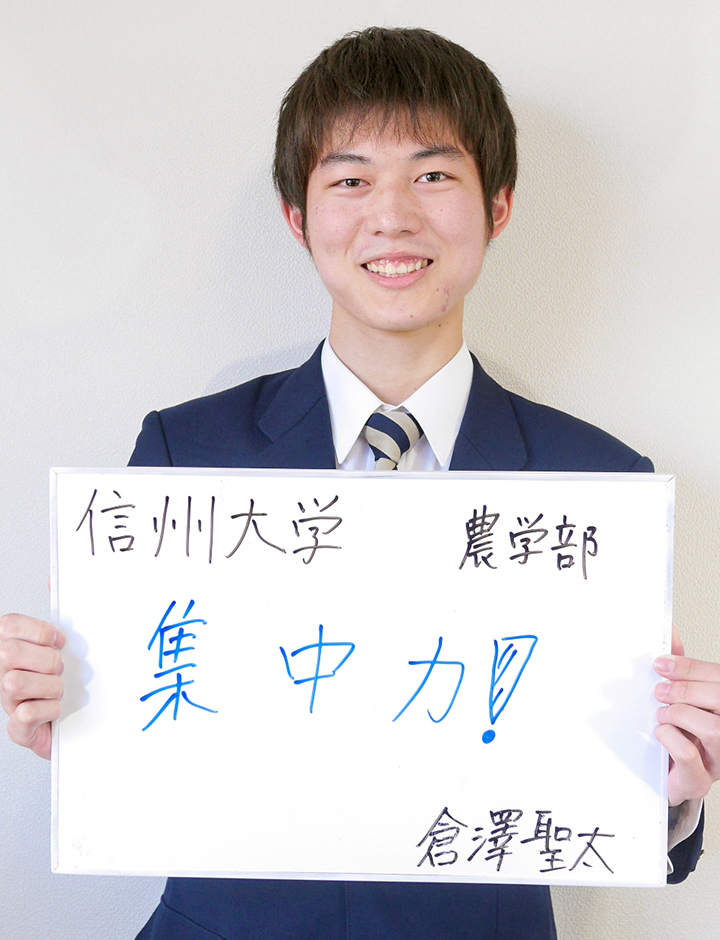 信州大学 農学部
集中力!
倉澤聖太